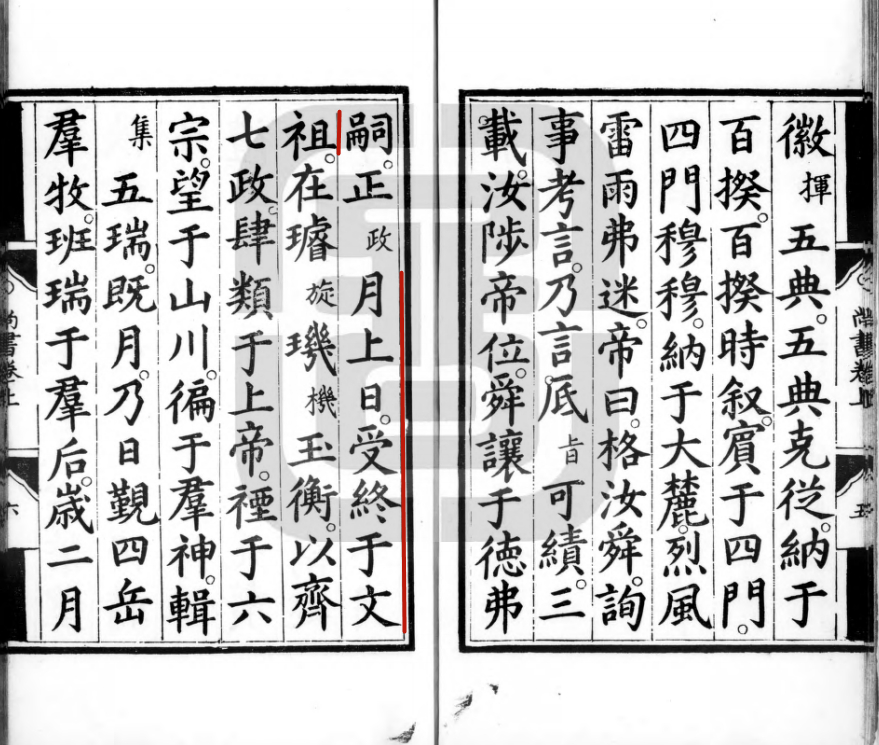 徽揮五典。五典克從。納于
百揆。百揆時叙。賓于四門。
四門穆穆。納于大麓。烈風
雷雨弗迷。帝曰。格汝舜。詢
事考言。乃言厎㫖可績。三
載。汝陟帝位。舜讓于徳弗
嗣。正政月上日。受終于文
祖。在璿旋璣機玉衡。以齊
七政。肆類于上帝。禋于六
宗。望于山川。徧于羣神。輯
集五瑞。既月。乃日覲四岳
羣牧。班瑞于羣后。歳二月
尚書卷上
六